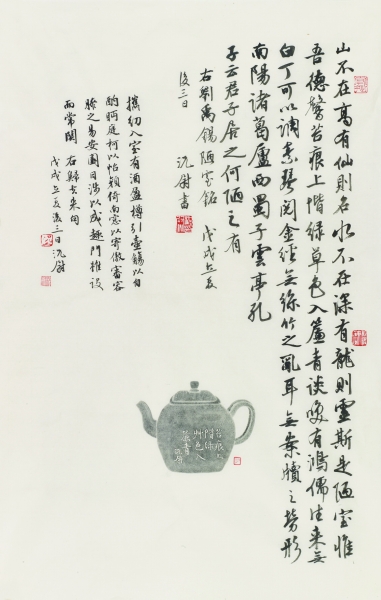 山不在高有仙則名水不在深有龍則靈斯是陋室惟
吾德馨苔痕上階綠草色入簾青談笑有鴻儒往來無
白丁可以調素琴閱金經無絲竹之亂耳無案牘之勞形
南陽諸葛廬西蜀子雲亭孔
子云君子居之何陋之有
右劉禹錫陋室銘 戊戌立夏
後三日 沉尉書
攜幼入室有酒盈樽引壺觴以自
酌眄庭柯以怡顏倚南窗以寄傲審容
膝之易安園日涉以成趣門雖設
而常關 右歸去來句
戊戌立夏後三日 沉尉
苔痕上
階綠
草色入
簾青